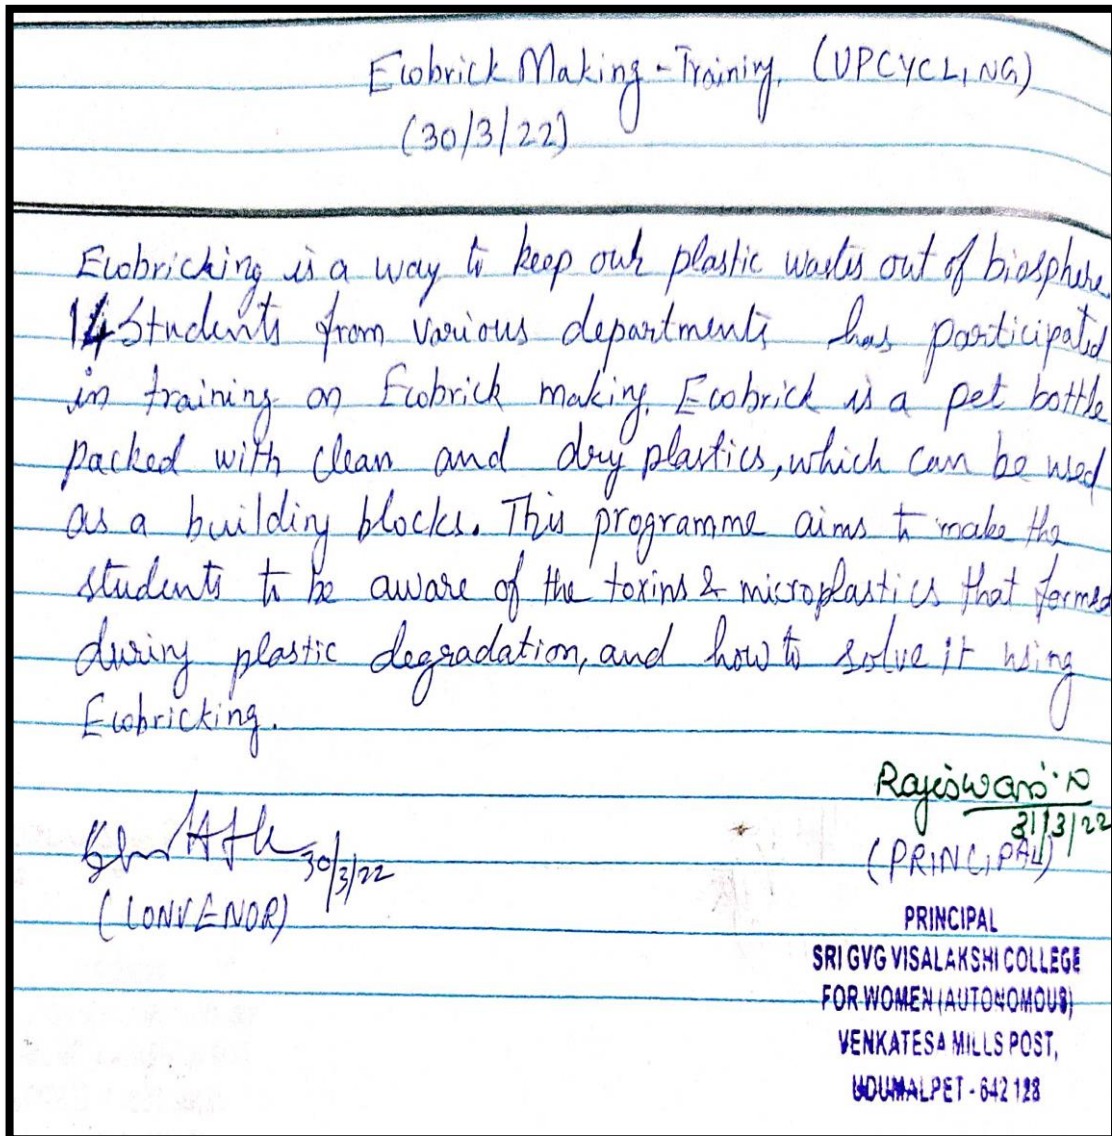 Ecobrick Making - Training. (UPCYCLING)
(30/3/22)
Ecobricking is a way to keep our plastic wastes out of biosphere.
14 Students from various departments has participated
in training on Ecobrick making. Ecobrick is a pet bottle
packed with clean and dry plastics, which can be used
as a building blocks. This programme aims to make the
students to be aware of the toxins & microplastics that formed
during plastic degradation, and how to solve it using
Ecobricking.
Rajeswari. N
31/3/22
(PRINCIPAL)
30/3/22
(CONVENOR)
PRINCIPAL
SRI GVG VISALAKSHI COLLEGE
FOR WOMEN (AUTONOMOUS)
VENKATESA MILLS POST,
UDUMALPET - 642 128